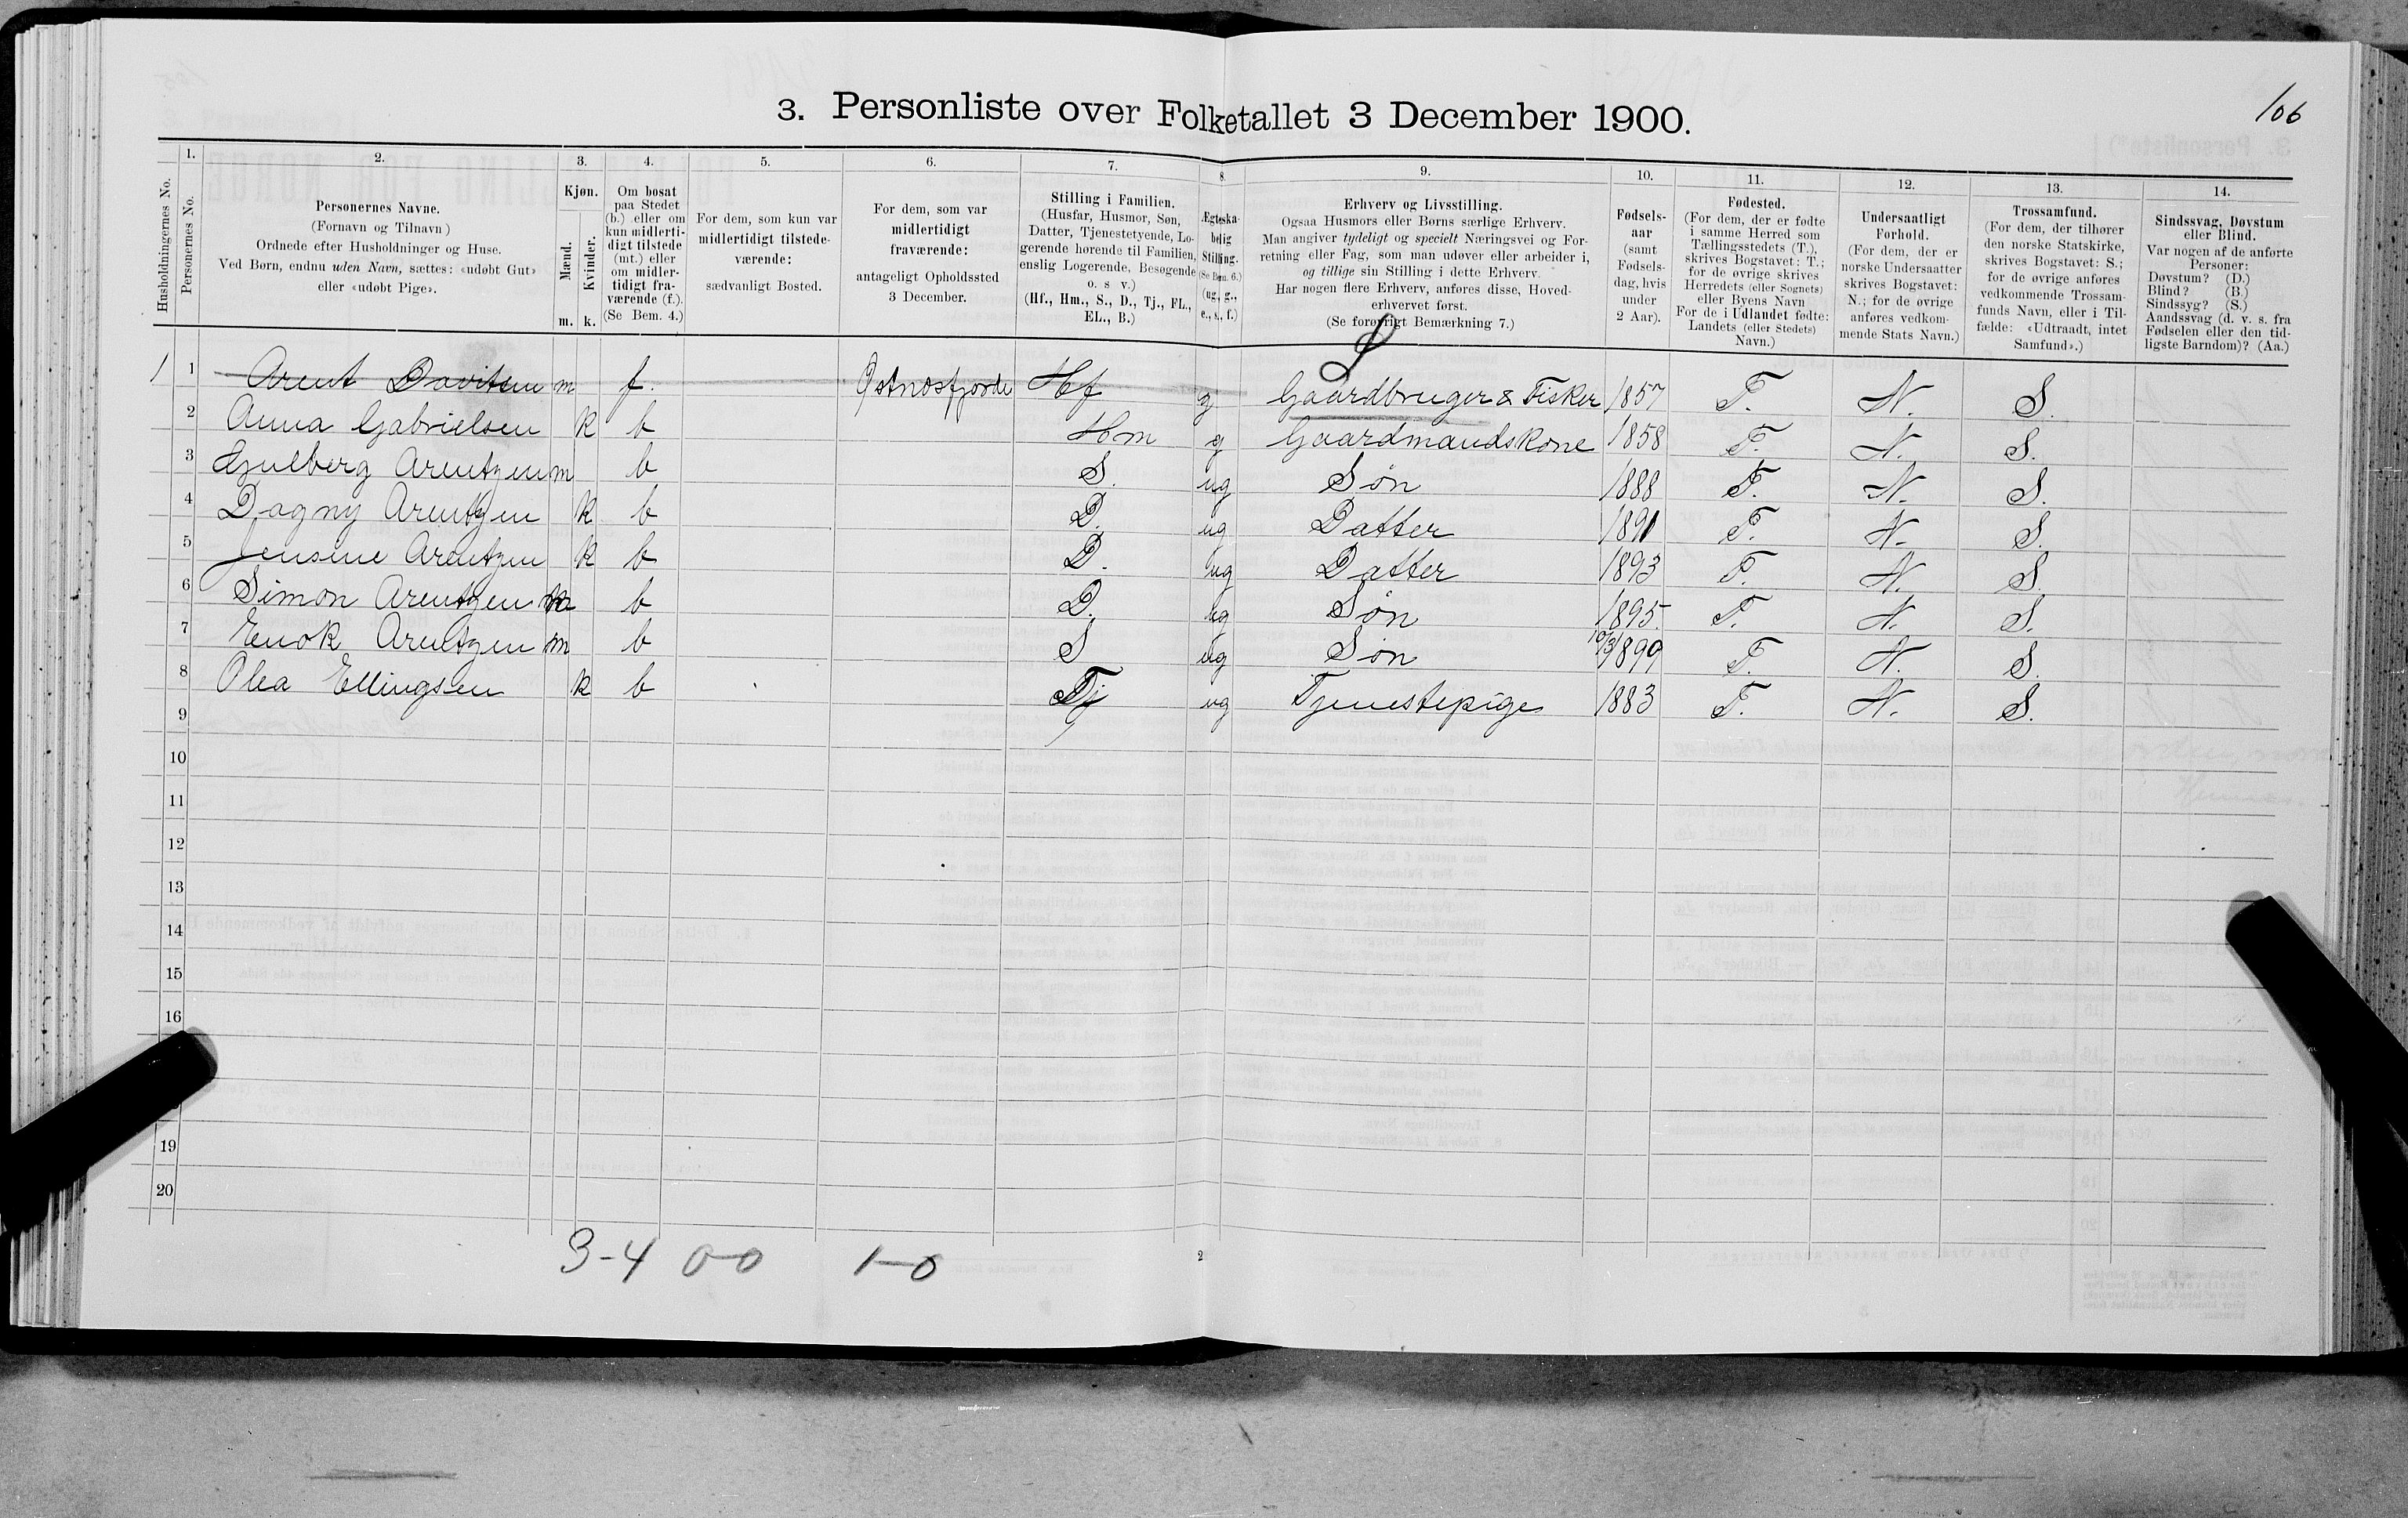 106
3. Personliste over Folketallet 3 December 1900.
Husholdningernes No.
1.
Personernes No.
2.
Personernes Navne.
(Fornavn og Tilnavn)
Ordnede efter Husholdninger og Huse.
Ved Børn, endnu uden Navn, sættes: «udøbt Gut»
eller «udøbt Pige».
3.
Kjøn.
Mænd.
Kvinder.
m. k.
4.
Om bosat
paa Stedet
(b.) eller om
kun midlerti-
digt tilstede
(mt.) eller
om midler-
tidigt fra-
værende (f.).
(Se Bem. 4.)
5.
For dem, som kun var
midlertidigt tilstede-
værende:
sædvanligt Bosted.
6.
For dem, som var
midlertidigt
fraværende:
antageligt Opholdssted
3 December.
7.
Stilling i Familien.
(Husfar, Husmor, Søn,
Datter, Tjenestetyende, Lo-
gerende hørende til Familien,
enslig Logerende, Besøgende
o. s v.)
(Hf., Hm., S., D., Tj., FL.,
EL., B.)
8.
Ægteska-
belig
Stilling.
(Se Bem. 6.)
(ug., g.,
e., s., f.)
9.
Erhverv og Livsstilling.
Ogsaa Husmors eller Børns særlige Erhverv.
Man angiver tydeligt og specielt Næringsvei og For-
retning eller Fag, som man udøver eller arbeider i,
og tillige sin Stilling i dette Erhverv.
Har nogen flere Erhverv, anføres disse, Hoved-
erhvervet først.
(Se forøvrigt Bemærkning 7.)
10.
Fødsels-
aar
(samt
Fødsels-
dag, hvis
under
2 Aar).
11.
Fødested.
(For dem, der er fødte
i samme Herred som
Tællingsstedets (T.),
skrives Bogstavet: T.;
for de øvrige skrives
Herredets (eller Sognets)
eller Byens Navn
For de i Udlandet fødte:
Landets (eller Stedets)
Navn.)
12.
Undersaatligt
Forhold.
(For dem, der er
norske Undersaatter
skrives Bogstavet:
N.; for de øvrige
anføres vedkom-
mende Stats Navn.)
13.
Trossamfund.
(For dem, der tilhører
den norske Statskirke,
skrives Bogstavet: S.;
for de øvrige anføres
vedkommende Trossam-
funds Navn, eller i Til-
fælde: «Udtraadt, intet
Samfund».)
14.
Sindssvag, Døvstum
eller Blind.
Var nogen af de anførte
Personer:
Døvstum? (D.)
Blind? (B.)
Sindssyg? (S.)
Aandssvag (d. v. s. fra
Fødselen eller den tid-
ligste Barndom)? (Aa.)
1 1 Arent Davitsen m f. Ostnæsfjorde Hf g Gaardbruger & Fisker 1857 T. N. S.
2 Anna Gabrielsen k b Hm g Gaardmandskone 1858 T. N. S.
3 Hjulberg Arentzen m b S. ug Søn 1888 T. N. S.
4 Dagny Arentzen k b D. ug Datter 1891 T. N. S.
5 Jensine Arentzen k b D. ug Datter 1893 T. N. S.
6 Simon Arentzen m b D. ug Søn 1895. T. N. S.
7 Enok Arentzen m b S ug Søn 10/3 1899 T. N. S.
8 Olea Ellingsen k b Tj ug Tjenestepige 1883 T. N. S.
9
10
11
12
13
14
15
16
19
20
3-4 0-0 1-0
2